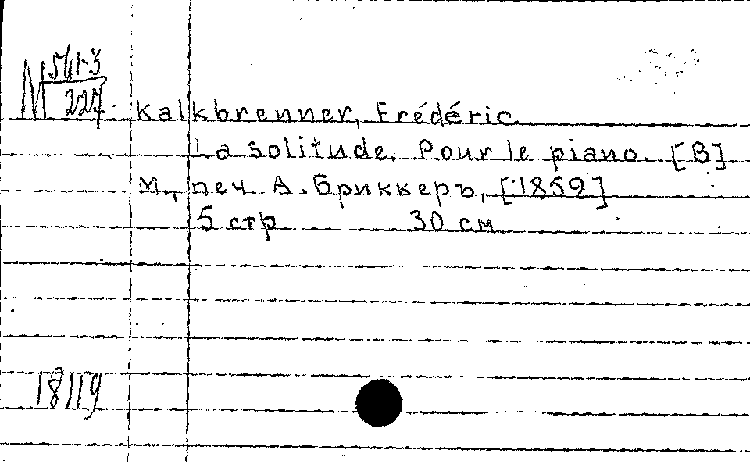 М 561-3
227
Kalkbrenner, Frédéric
La solitude. Pour le piano. [B]
М., печ. А. Бриккеръ, [1852]
5 стр 30 см
18119